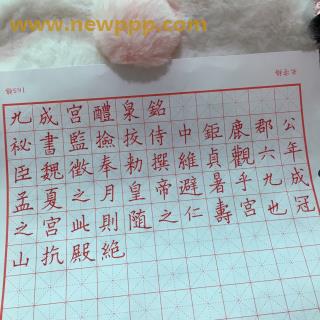 www.newppp.com
165格
米字格
九成宮醴泉銘
祕書監撿挍侍中鉅鹿郡公
臣魏徵奉勅撰維貞觀六年
孟夏之月皇帝避暑乎九成
之宮此則隨之仁壽宮也冠
山抗殿絕